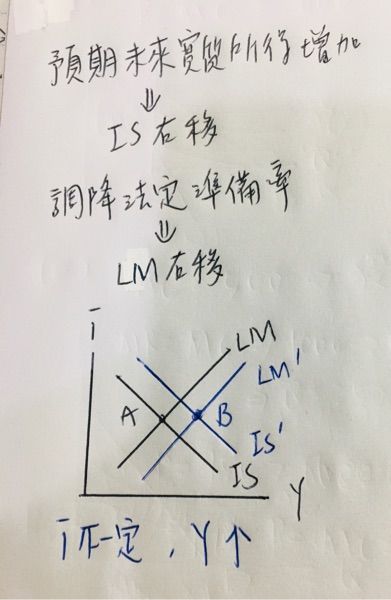 預期未來實質所得增加
⇓
IS右移
調降法定準備率
⇓
LM右移
i
LM
LM'
A
B
IS'
IS
Y
i不一定，Y↑